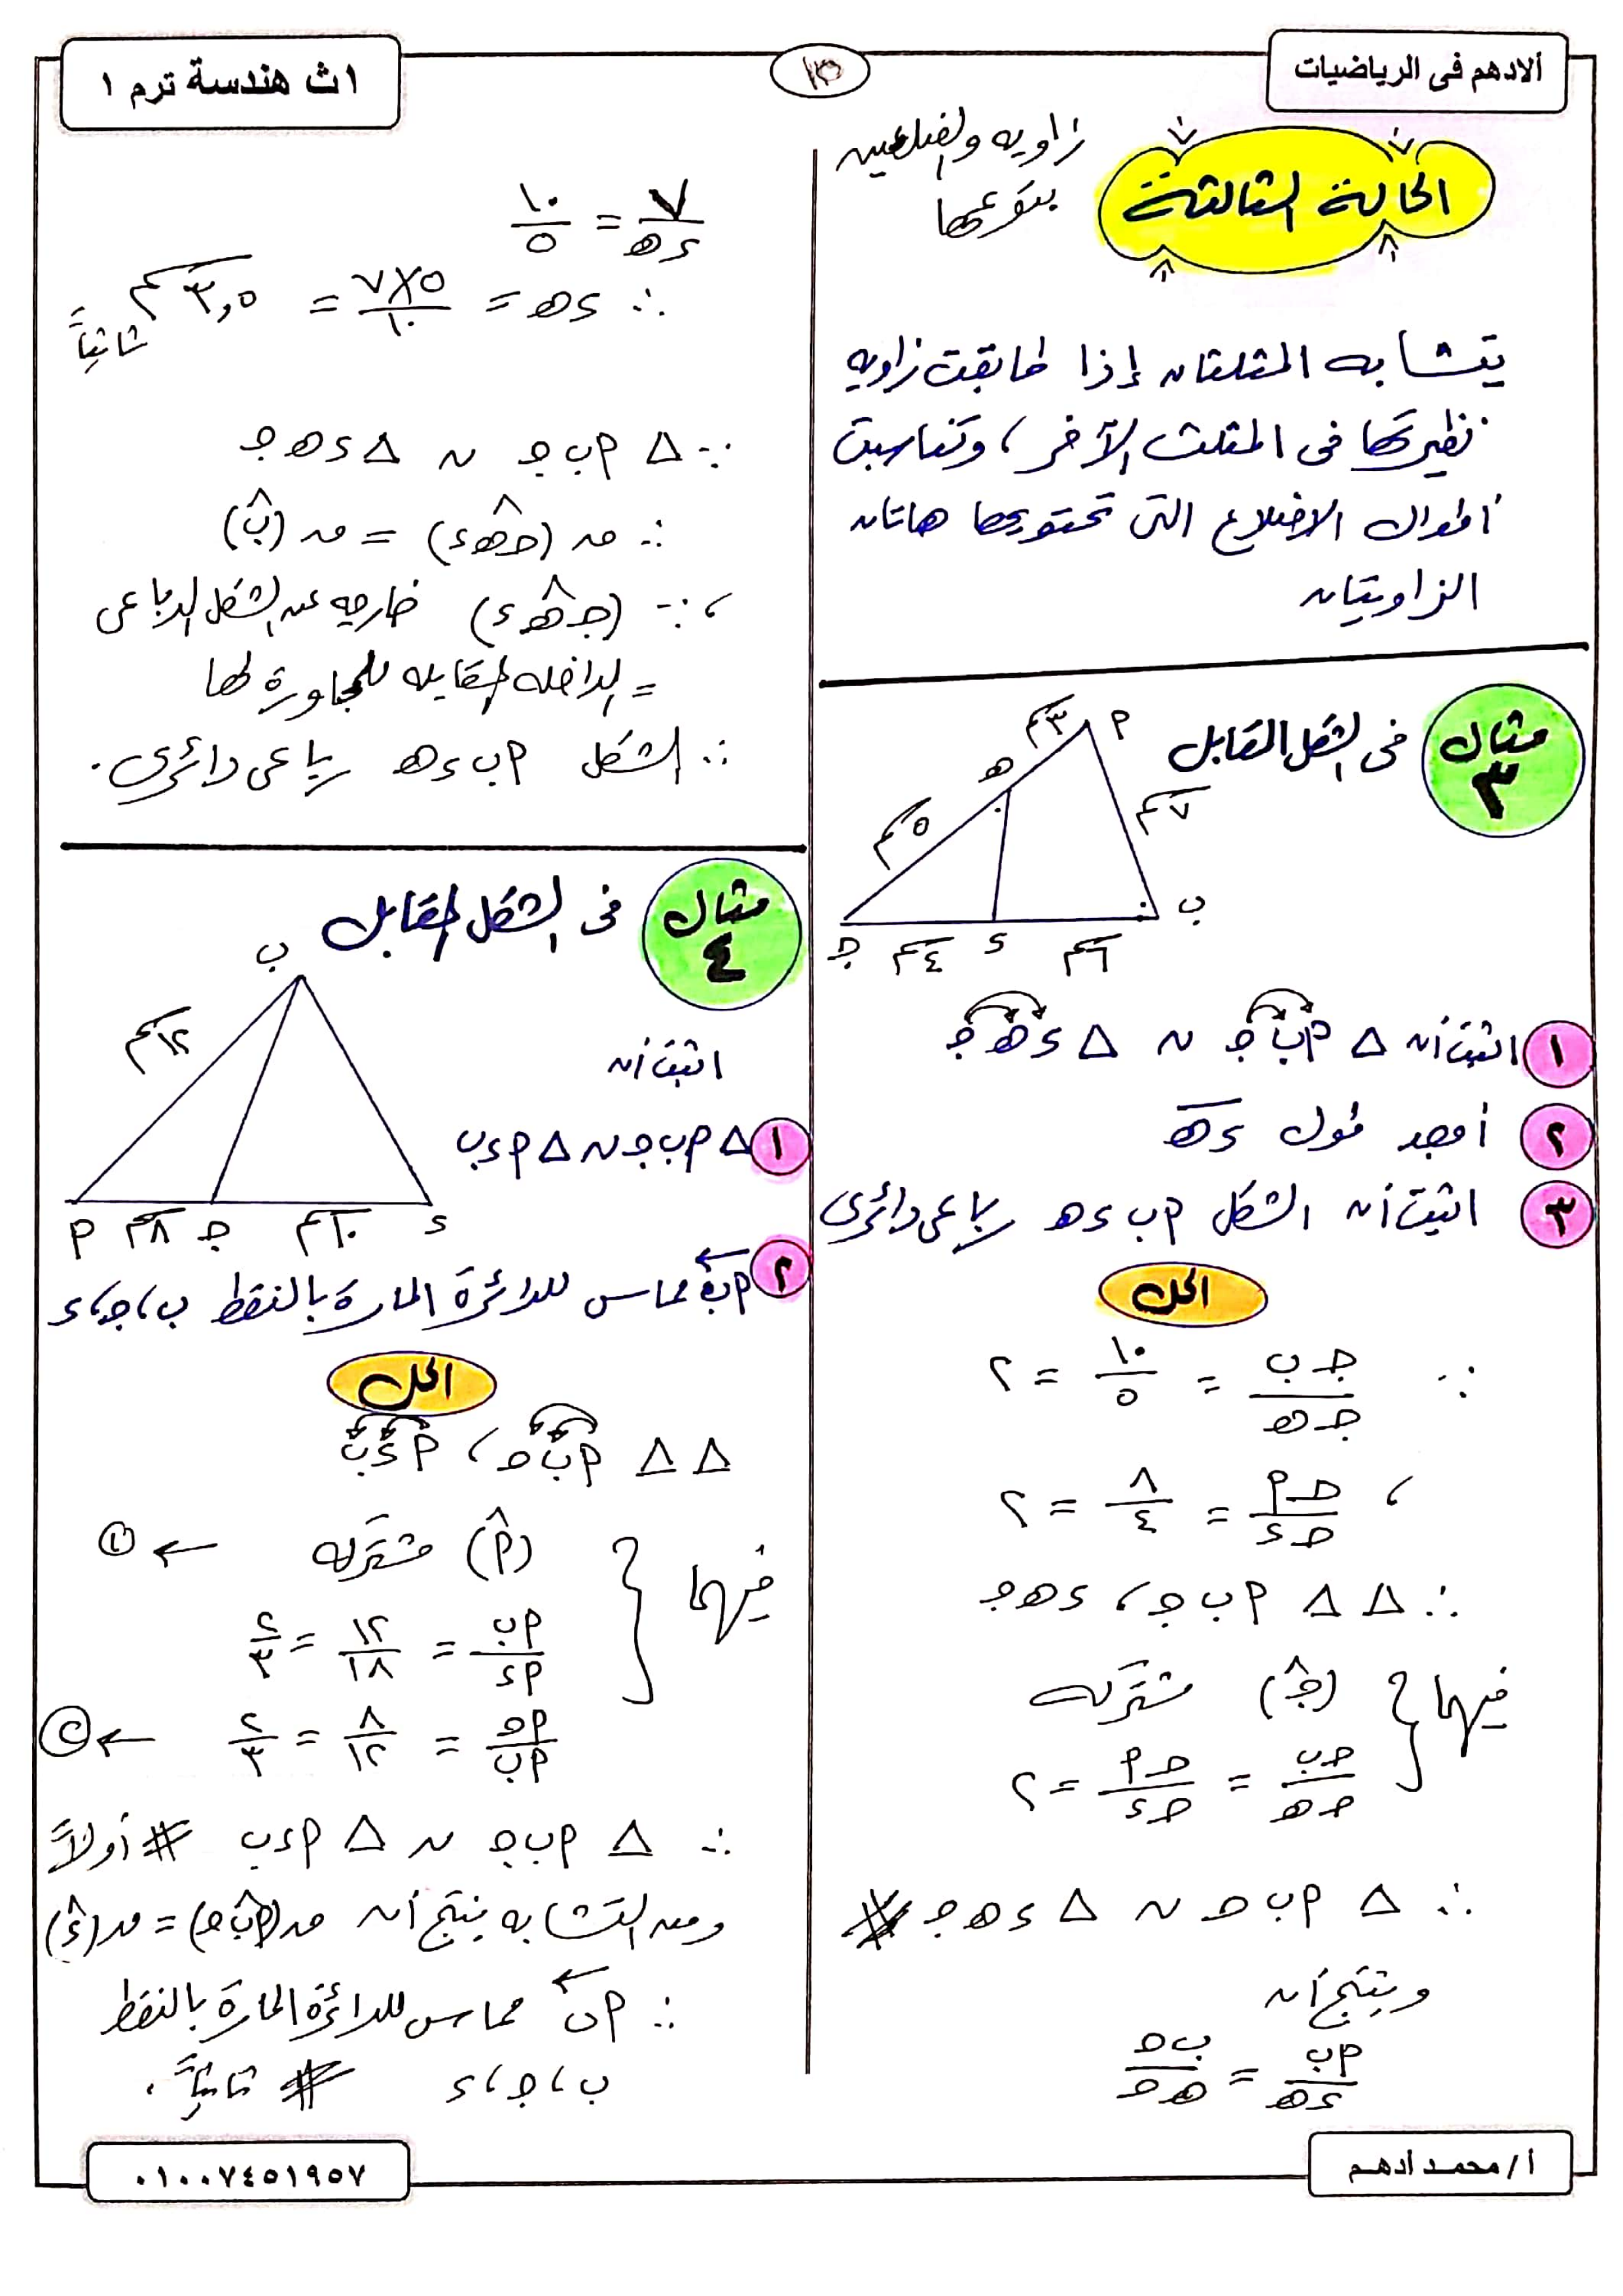 ألادهم فى الرياضيات
١٣
١ث هندسة ترم ١
الحالة الثالثة
زاويه والضلعين
يتشابه المثلثان إذا طابقت زاويه
نظيرتها فى المثلث الآخر ، وتناسبت
أطوال الاضلاع التى تحتويها هاتان
الزاويتان
مثال ٣
فى الشكل المقابل
م
٣سم
هـ
٥سم
٧سم
ب
جـ
٤سم
د
٦سم
١ اثبت أن △ م ب جـ ~ △ د هـ جـ
٢ أوجد طول د هـ
٣ اثبت أن الشكل م ب د هـ رباعى دائرى
الحل
∵ جـ ب / جـ هـ = ١٠ / ٥ = ٢
، جـ م / جـ د = ٨ / ٤ = ٢
∴ △ △ م ب جـ ، د هـ جـ
فيهما { (جـ^) مشتركه
جـ ب / جـ هـ = جـ م / جـ د = ٢
∴ △ م ب جـ ~ △ د هـ جـ #
وينتج أن
م ب / د هـ = ب جـ / هـ جـ
٧ / د هـ = ١٠ / ٥
∴ د هـ = ٥×٧ / ١٠ = ٣,٥ سم
ثانياً
∵ △ م ب جـ ~ △ د هـ جـ
∴ ق (جـ هـ^ د) = ق (ب^)
، ∵ (جـ هـ^ د) خارجه عن الشكل الرباعى
= الداخله المقابله للمجاورة لها
∴ الشكل م ب د هـ رباعى دائرى .
مثال ٤
فى الشكل المقابل
ب
١٢سم
م
٨سم
جـ
١٠سم
د
اثبت أن
١ △ م ب جـ ~ △ م د ب
٢ م ب مماس للدائرة المارة بالنقط ب ، جـ ، د
الحل
△ △ م ب جـ ، م د ب
فيهما { (م^) مشتركه ← ١
م ب / م د = ١٢ / ١٨ = ٢ / ٣
م جـ / م ب = ٨ / ١٢ = ٢ / ٣ ← ٢
∴ △ م ب جـ ~ △ م د ب # أولاً
ومن التشابه ينتج أن ق(م ب^ جـ) = ق(د^)
∴ م ب مماس للدائرة المارة بالنقط
ب ، جـ ، د # ثانياً .
أ / محمد أدهم
٠١٠٠٧٤٥١٩٥٧